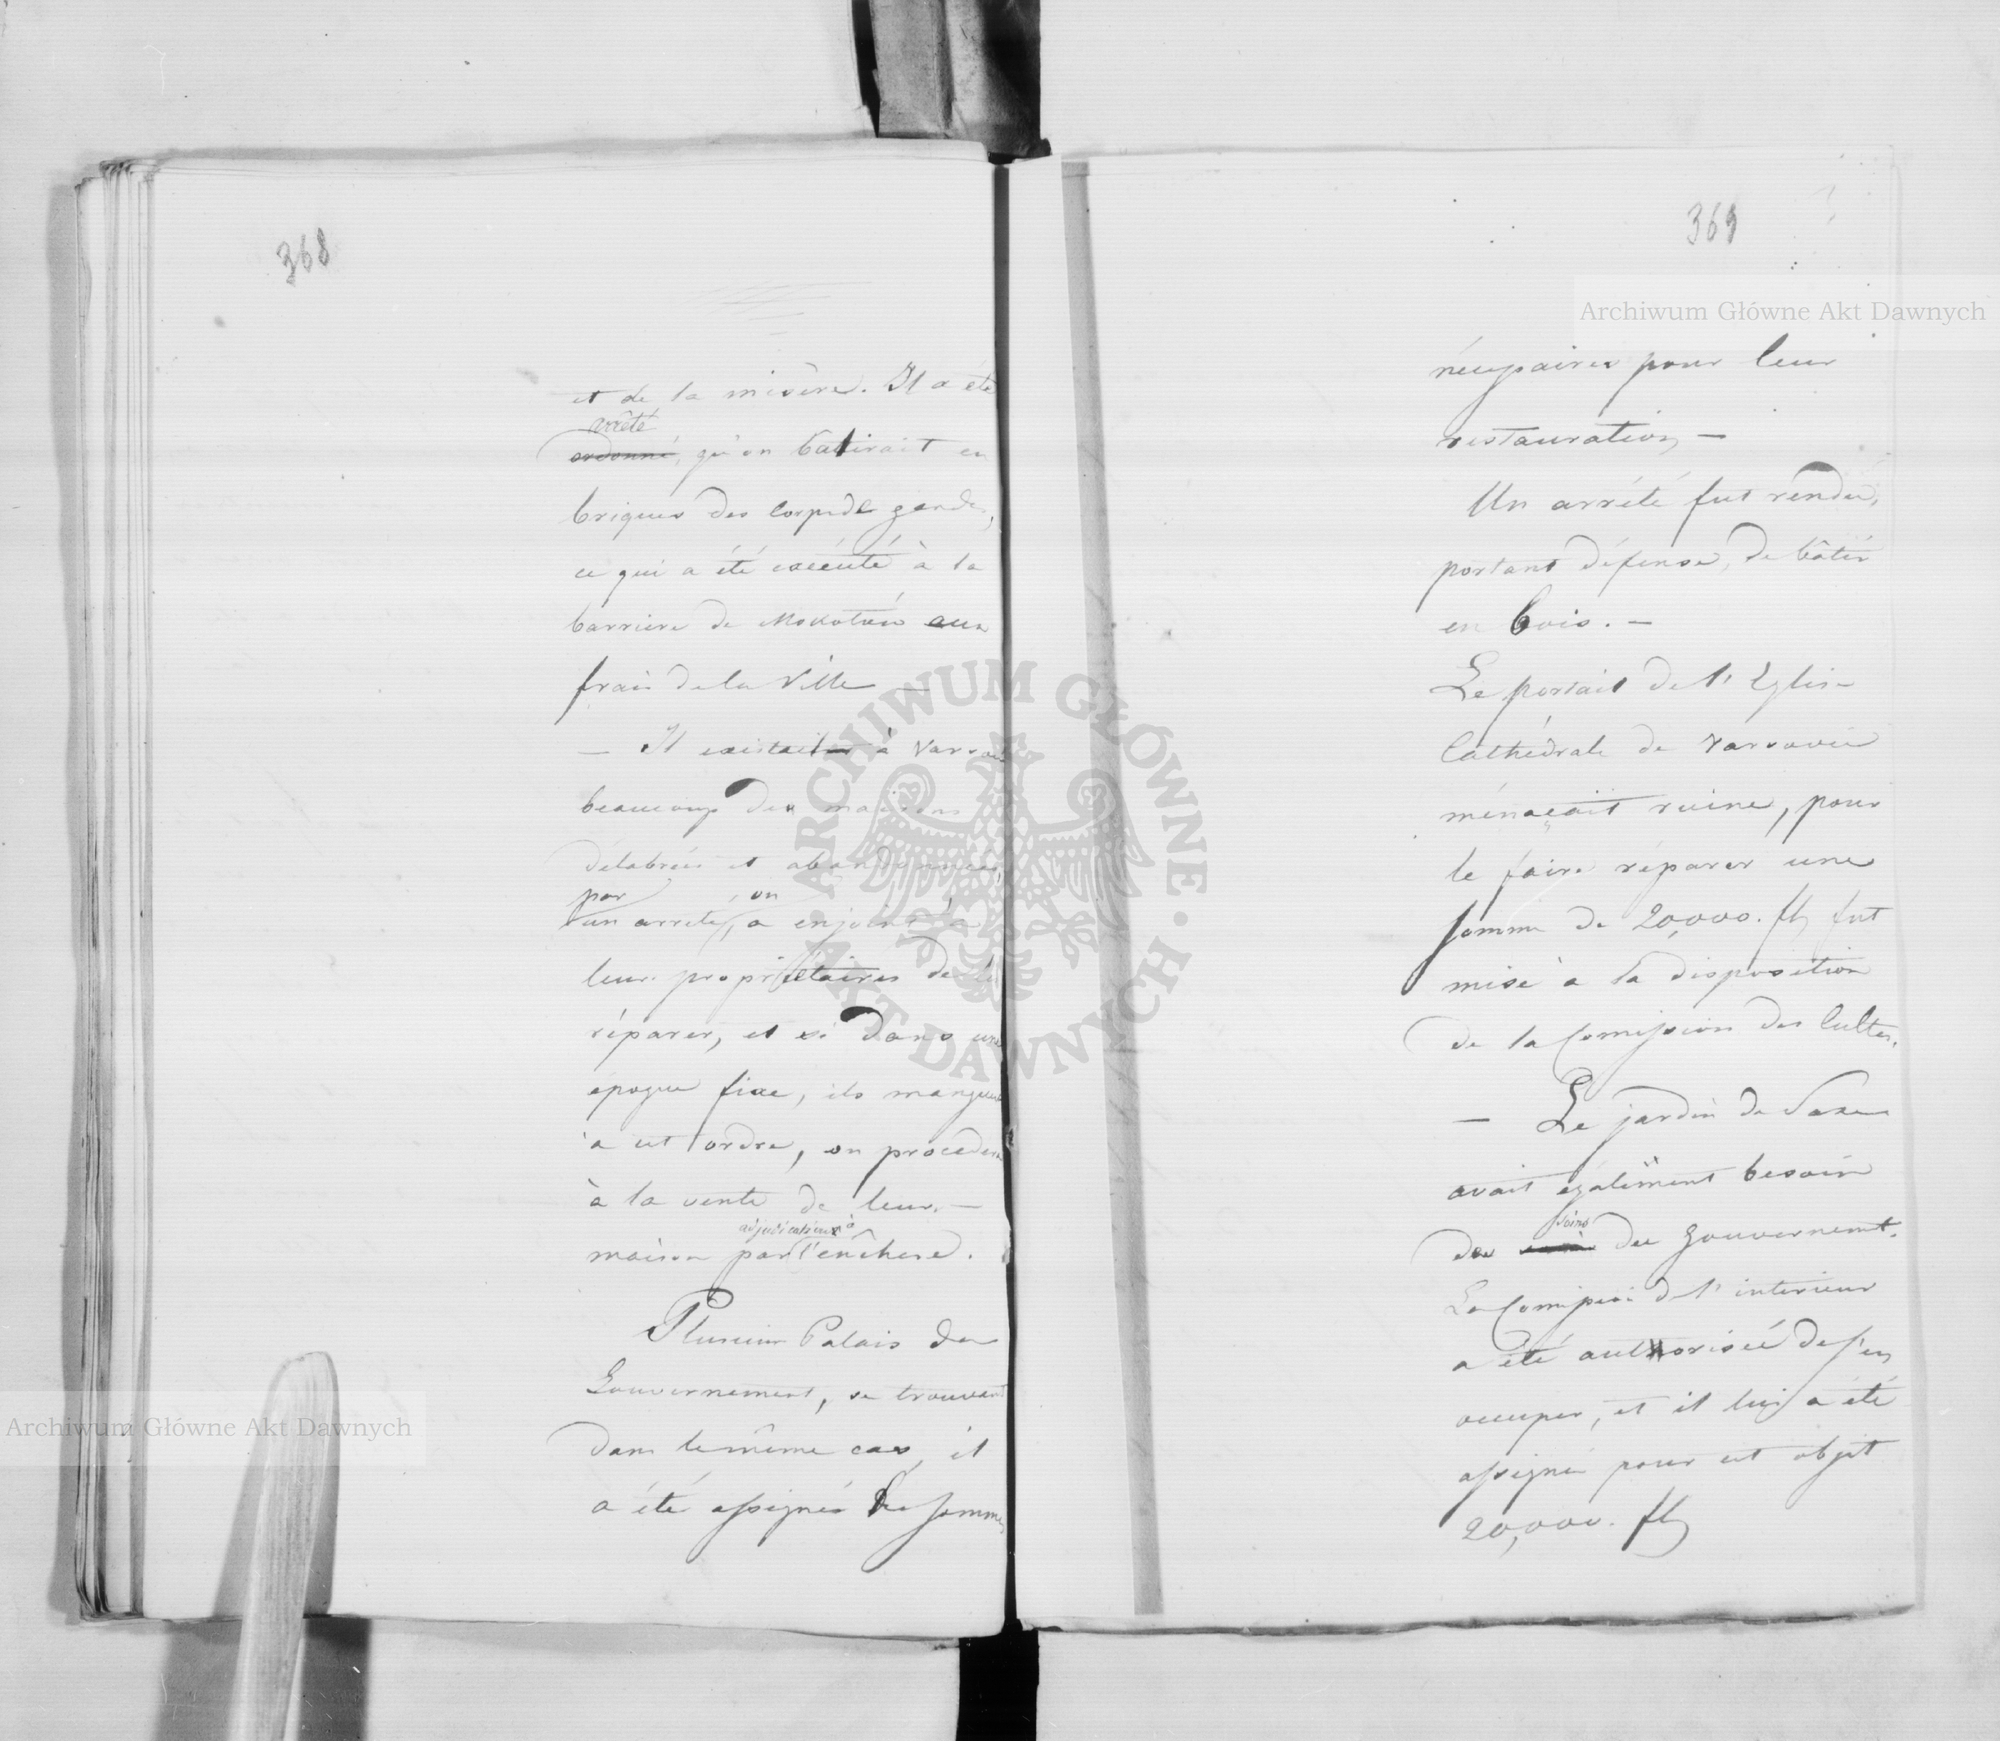 368
et de la misère. Il a été
arrêté
ordonné, qu'on batirait en
briques des corps de garde,
ce qui a été exécuté à la
barrière de Mokotów aux
frais de la Ville —
— Il existait à Varsovie
beaucoup des maisons
délabrées et abandonnées,
par on
un arrêté, a enjoint à
leurs propriétaires de les
réparer, et si dans une
epoque fixe, ils manquent
à cet ordre, on procedera
à la vente de leur —
adjudication à
maison par l'enchere.
Plusieurs Palais du
Gouvernement, se trouvant
dans le même cas, il
a été assigné des sommes
369
nécessaires pour leur
restauration —
Un arrêté fut rendu,
portant défense, de bâtir
en bois. —
Le portail de l'Eglise
Cathédrale de Varsovie
ménaçait ruine, pour
le faire réparer une
somme de 20,000. fl fut
mise à la disposition
de la Comission des Cultes.
— Le jardin de Saxe
avait également besoin
soins
des du Gouvernemt.
La Comission de l'interieur
a été authorisée de s'en
occuper, et il lui a été
assigné pour cet objet
20,000. fl
Archiwum Główne Akt Dawnych
Archiwum Główne Akt Dawnych
ARCHIWUM GŁÓWNE AKT DAWNYCH